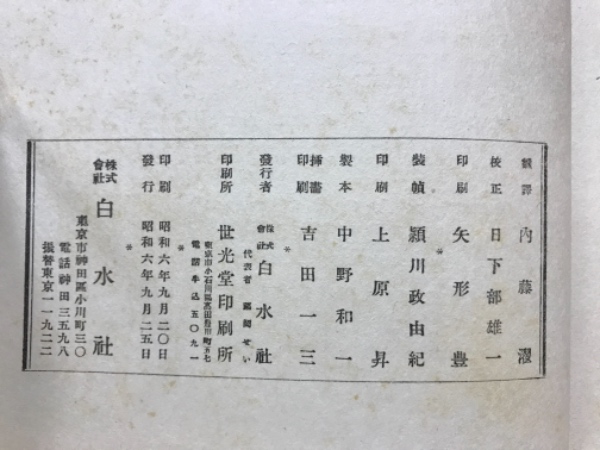 飜譯 內藤濯
校正 日下部雄一
印刷 矢形豊
裝幀 潁川政由紀
印刷 上原昇
製本 中野和一
揷畫印刷 吉田一三
發行者 株式會社 白水社
代表者
印刷所 世光堂印刷所
東京市小石川區高田豊川町五七
電話牛込五〇九一
印刷 昭和六年九月二〇日
發行 昭和六年九月二五日
株式會社 白水社
東京市神田區小川町三〇
電話神田三五九八
振替東京一一九二二